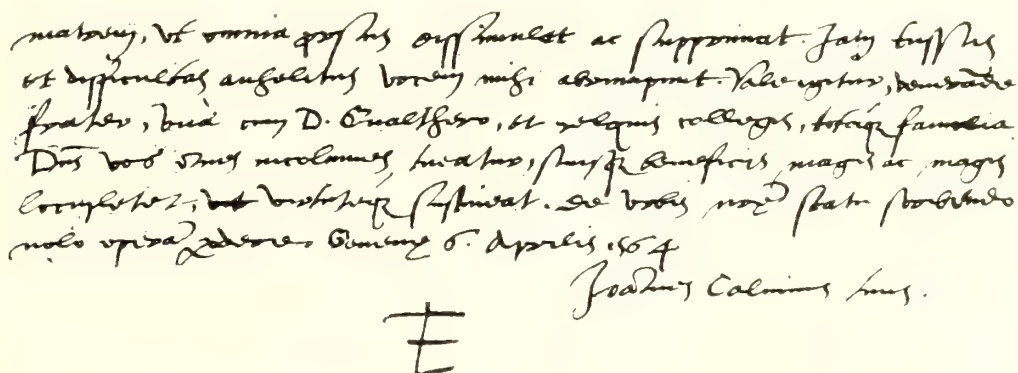 matrem, ut omnia prorsus dissimulet ac supprimat. Jam tussis
et difficultas anhelitus vocem mihi abrumpunt. Vale igitur, venerande
frater, unà cum D. Gualthero, et reliquis collegis, totaque familia
Dns vos omes incolumes tueatur, suisque beneficiis magis ac magis
locupletet, virtuteque sustineat. De urbis nre statu scribendo
nolo operam perdere. Genevae 6. Aprilis 1564
Joannes Calvinus tuus.